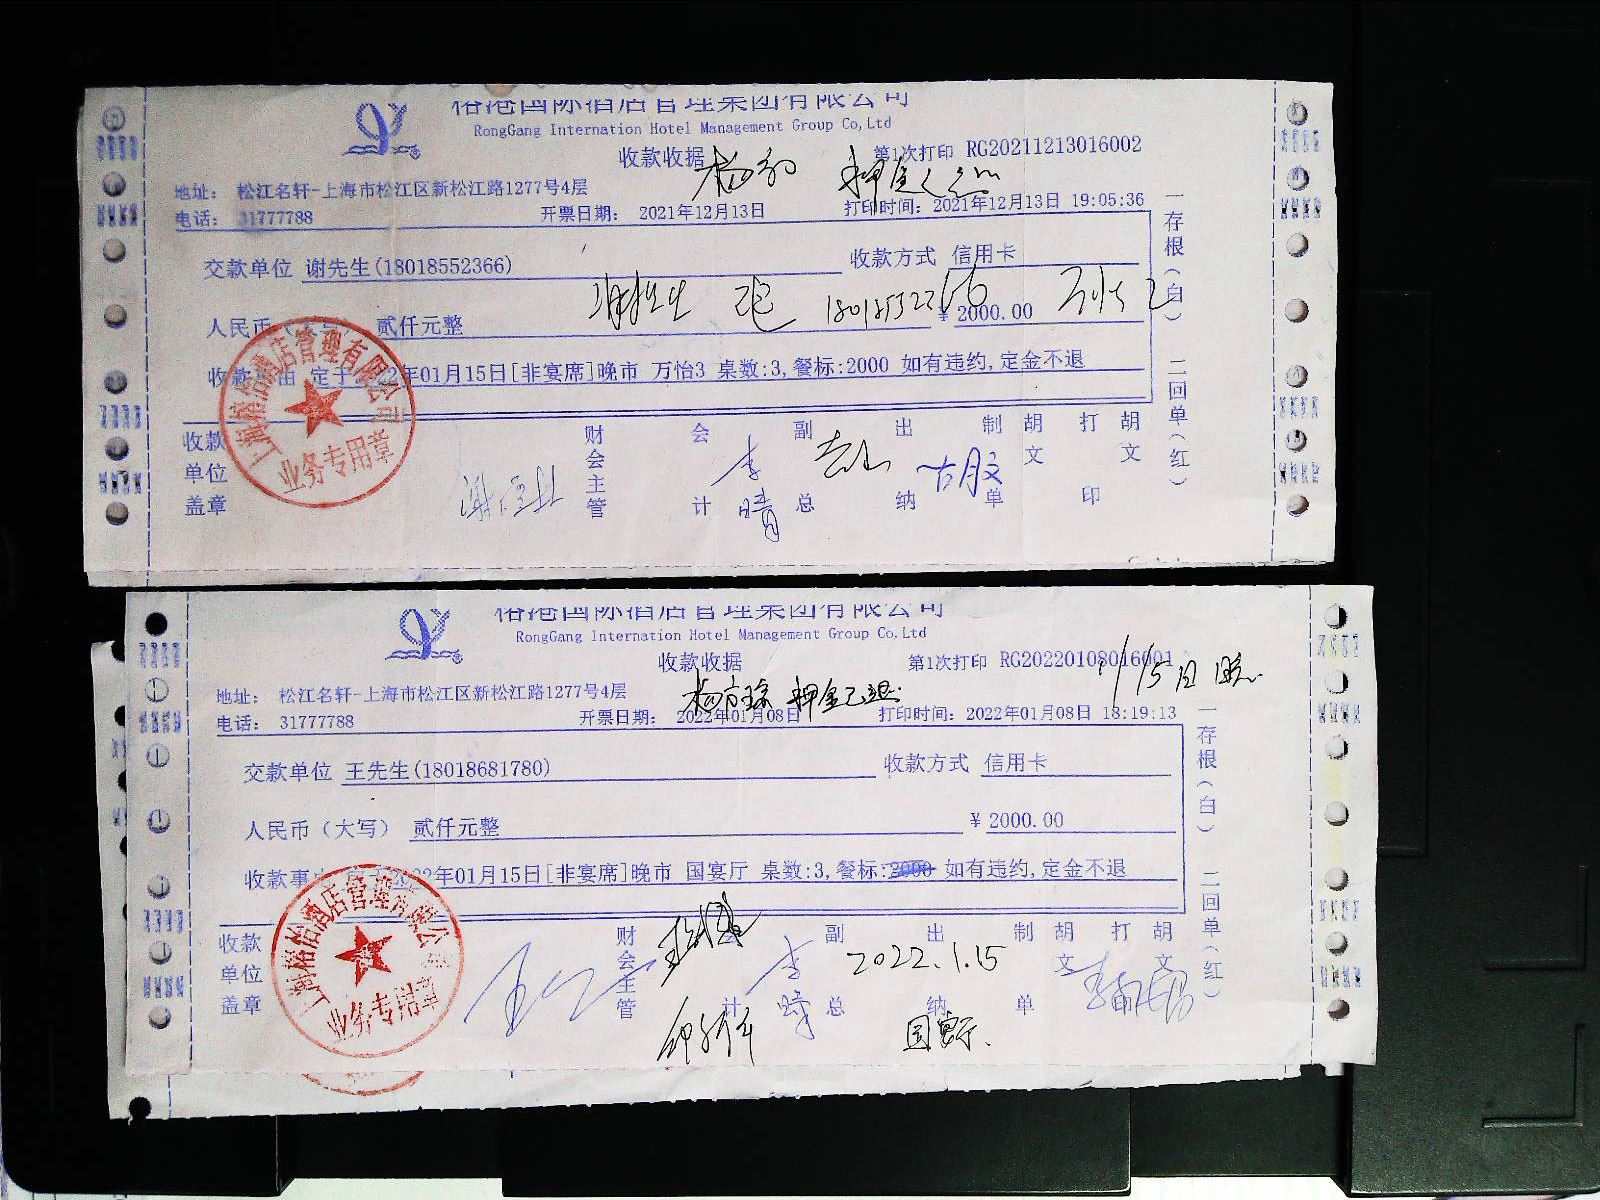 裕港国际酒店管理集团有限公司
RongGang Internation Hotel Management Group Co,Ltd
收款收据 第1次打印 RG20211213016002
地址: 松江名轩-上海市松江区新松江路1277号4层
电话: 31777788 开票日期: 2021年12月13日 打印时间: 2021年12月13日 19:05:36
交款单位 谢先生(18018552366) 收款方式 信用卡
人民币(大写) 贰仟元整 ¥2000.00
收款事由 定于2022年01月15日[非宴席]晚市 万怡3 桌数:3,餐标:2000 如有违约,定金不退
收款单位盖章 财会主管 会计 李晴 副总 出纳 制单 胡文 打印 胡文
一存根(白) 二回单(红)
业务专用章
裕港国际酒店管理集团有限公司
RongGang Internation Hotel Management Group Co,Ltd
收款收据 第1次打印 RG20220108016001
1/15日
地址: 松江名轩-上海市松江区新松江路1277号4层
押金已退
电话: 31777788 开票日期: 2022年01月08日 打印时间: 2022年01月08日 18:19:13
交款单位 王先生(18018681780) 收款方式 信用卡
人民币(大写) 贰仟元整 ¥2000.00
收款事由 定于2022年01月15日[非宴席]晚市 国宴厅 桌数:3,餐标:2000 如有违约,定金不退
收款单位盖章 财会主管 会计 李晴 副总 2022.1.15 出纳 制单 胡文 打印 胡文
国宴厅
一存根(白) 二回单(红)
业务专用章